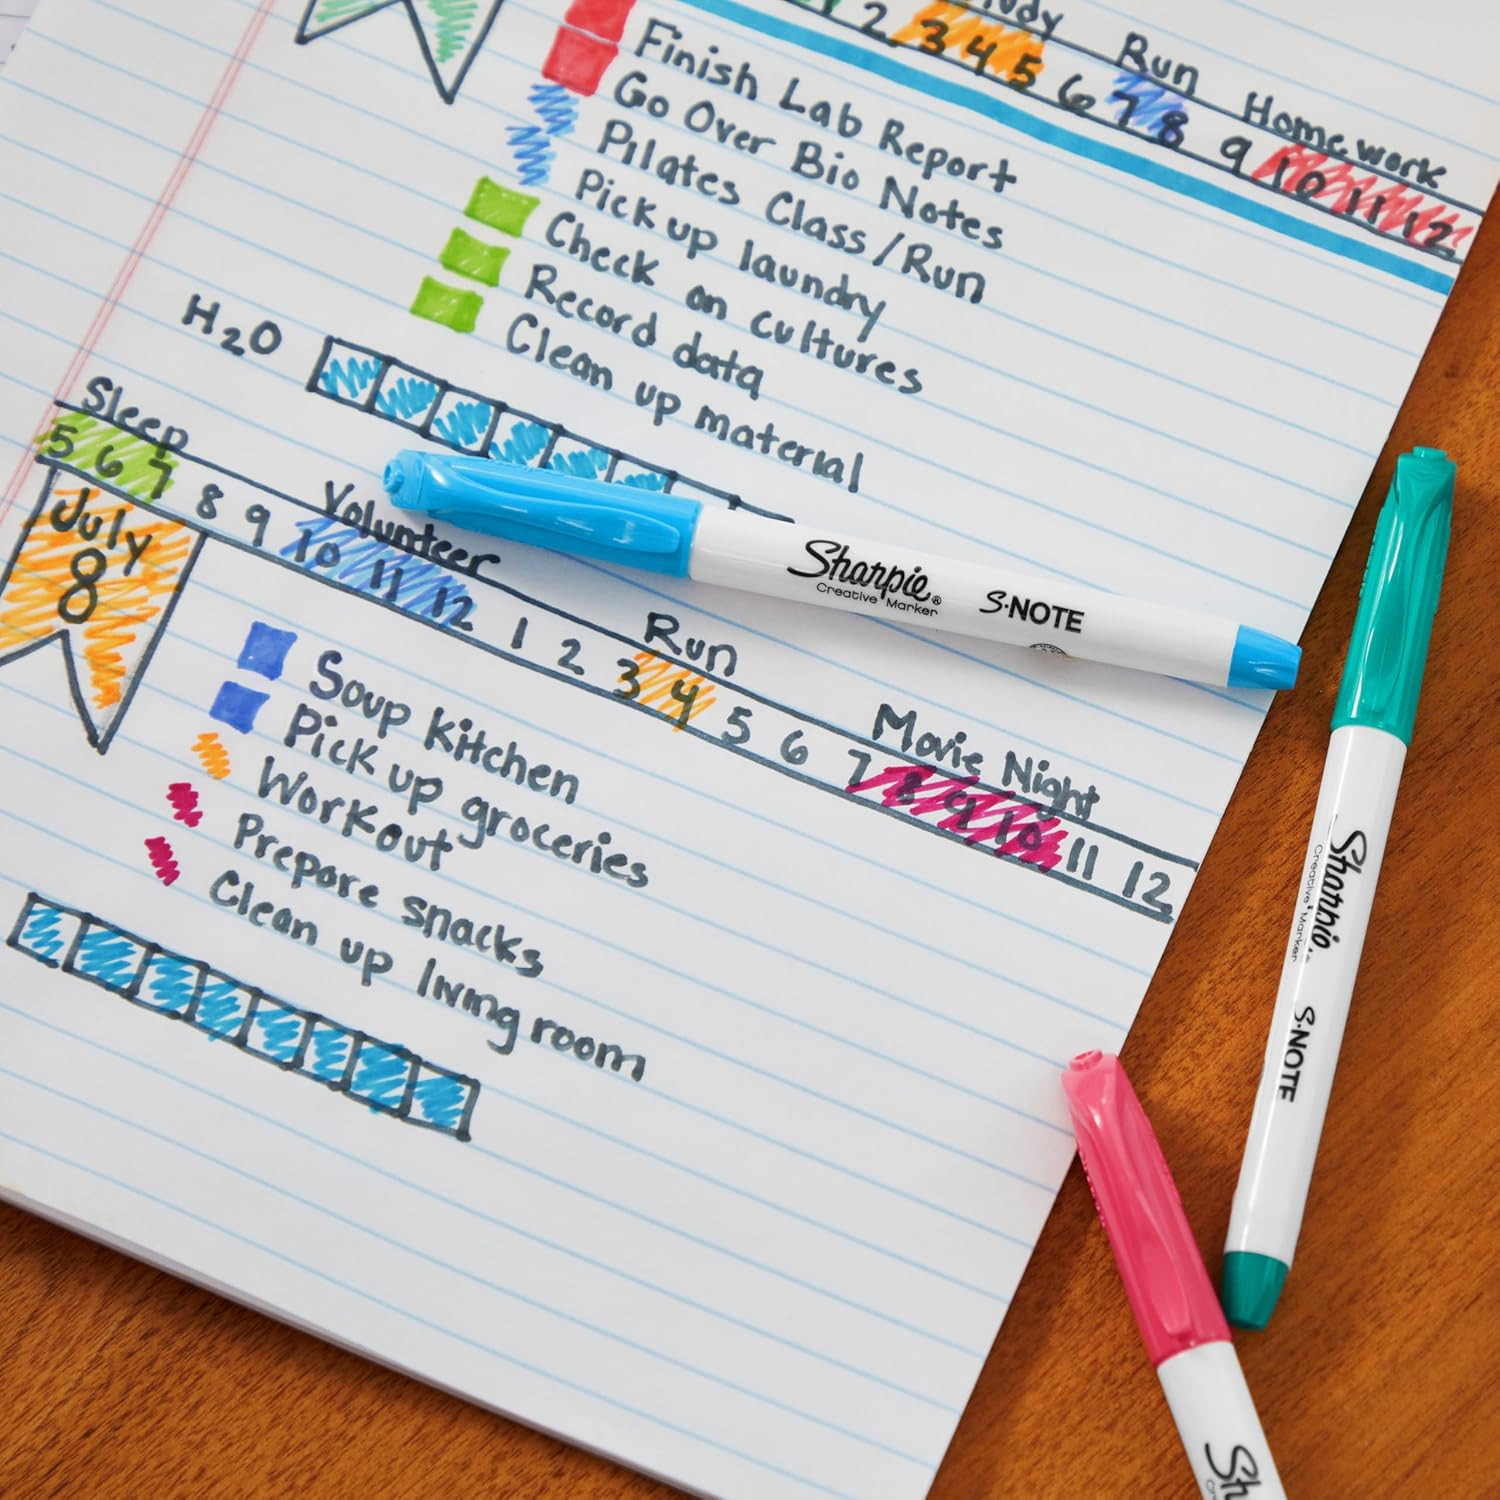 2 3 4 5 6 7 8 9 10 11 12
Run
Homework
Finish Lab Report
Go Over Bio Notes
Pilates Class/Run
Pick up laundry
Check on cultures
Record data
Clean up material
H2O
Sleep
Volunteer
Run
Movie Night
5 6 7 8 9 10 11 12 1 2 3 4 5 6 7 8 9 10 11 12
July
8
Soup Kitchen
Pick up groceries
Workout
Prepare snacks
Clean up living room
Sharpie®
Creative Marker
S·NOTE
Sharpie
Creative Marker
S·NOTE
Sh